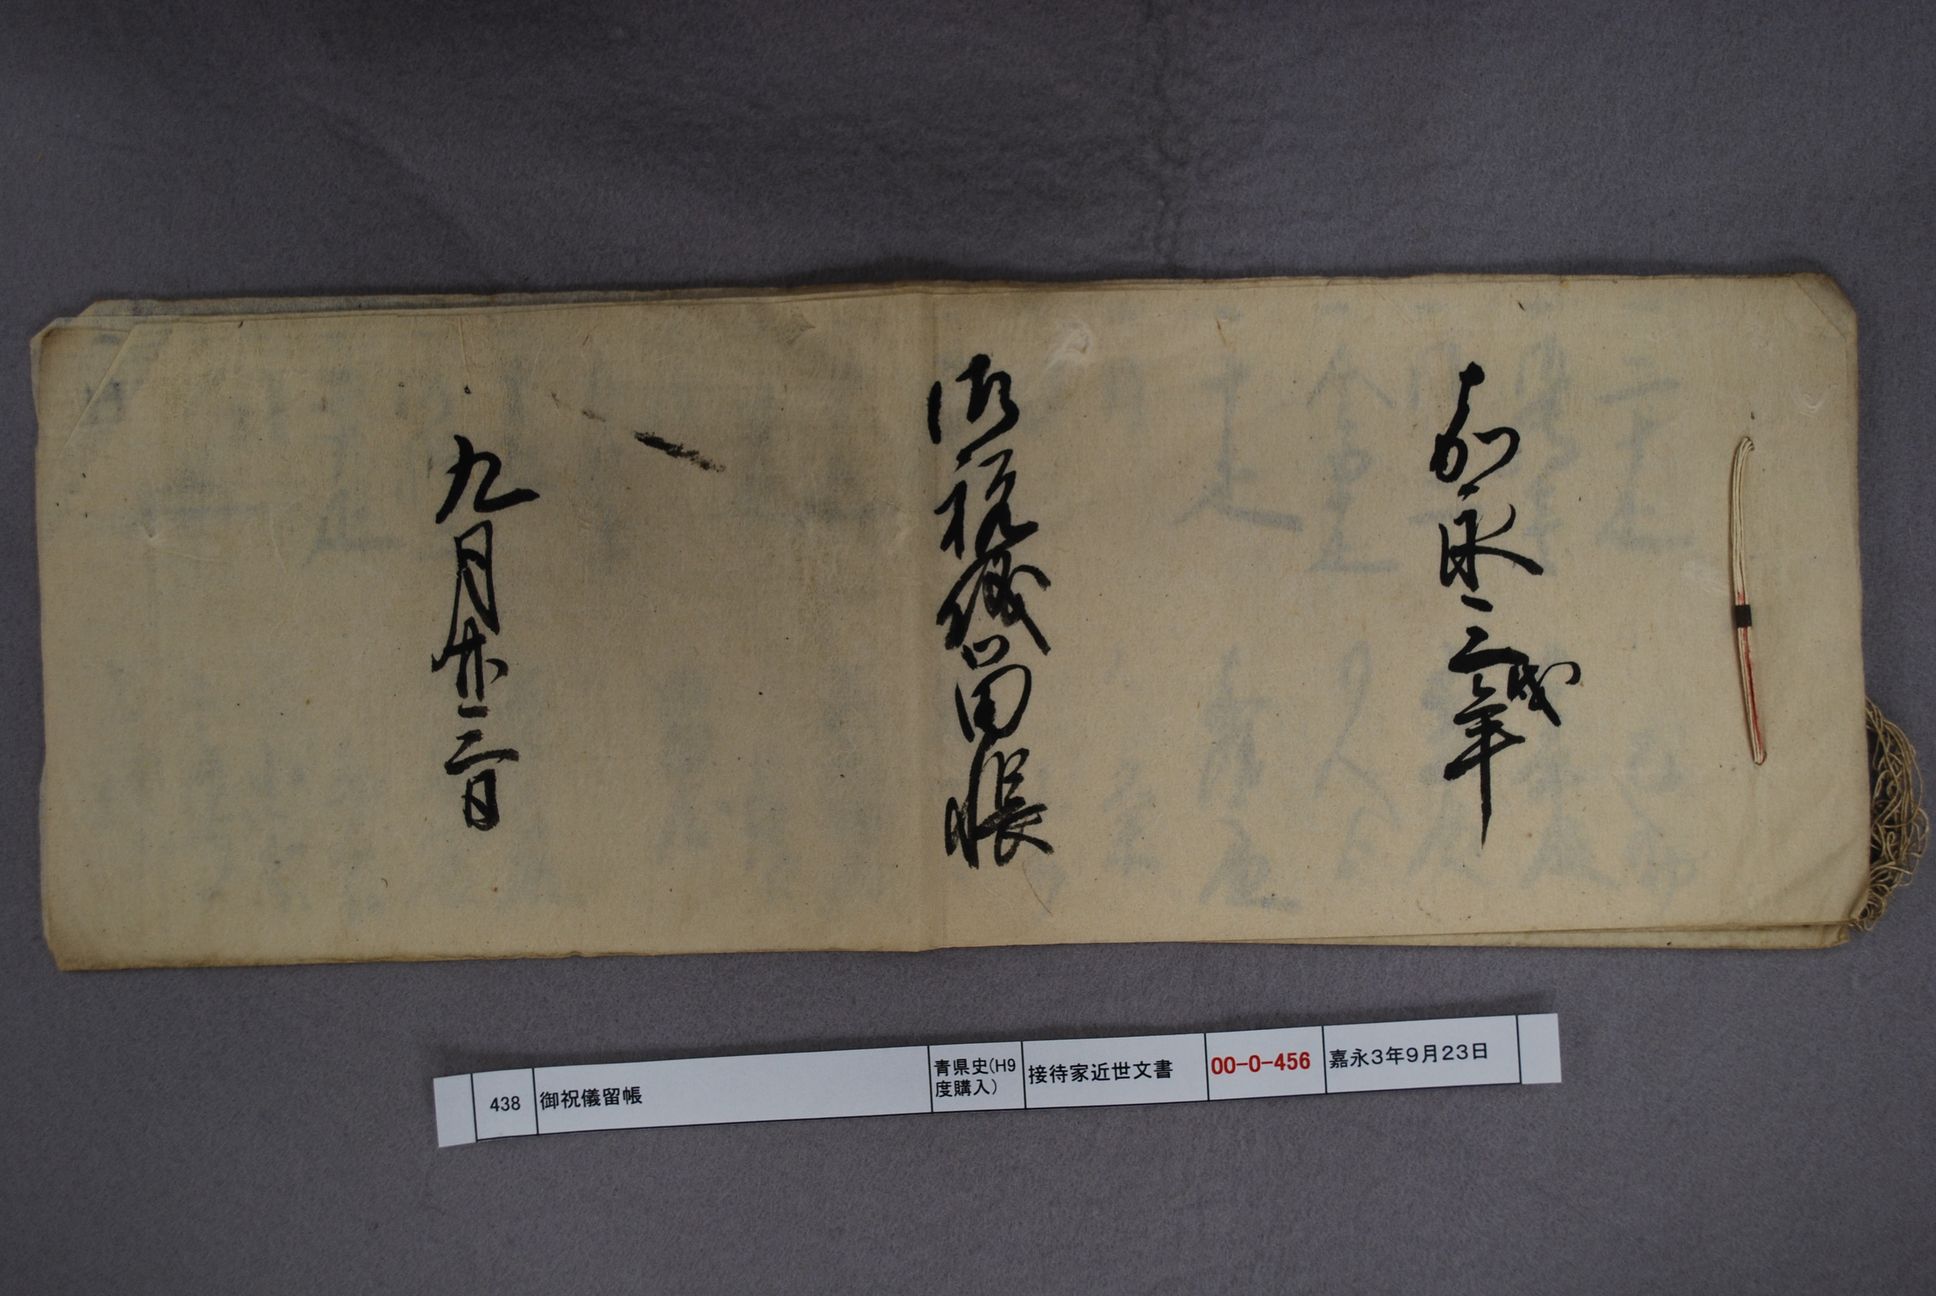 嘉永三戌年
御祝儀留帳
九月廿三日
438
御祝儀留帳
青県史(H9
度購入)
接待家近世文書
00-0-456
嘉永3年9月23日